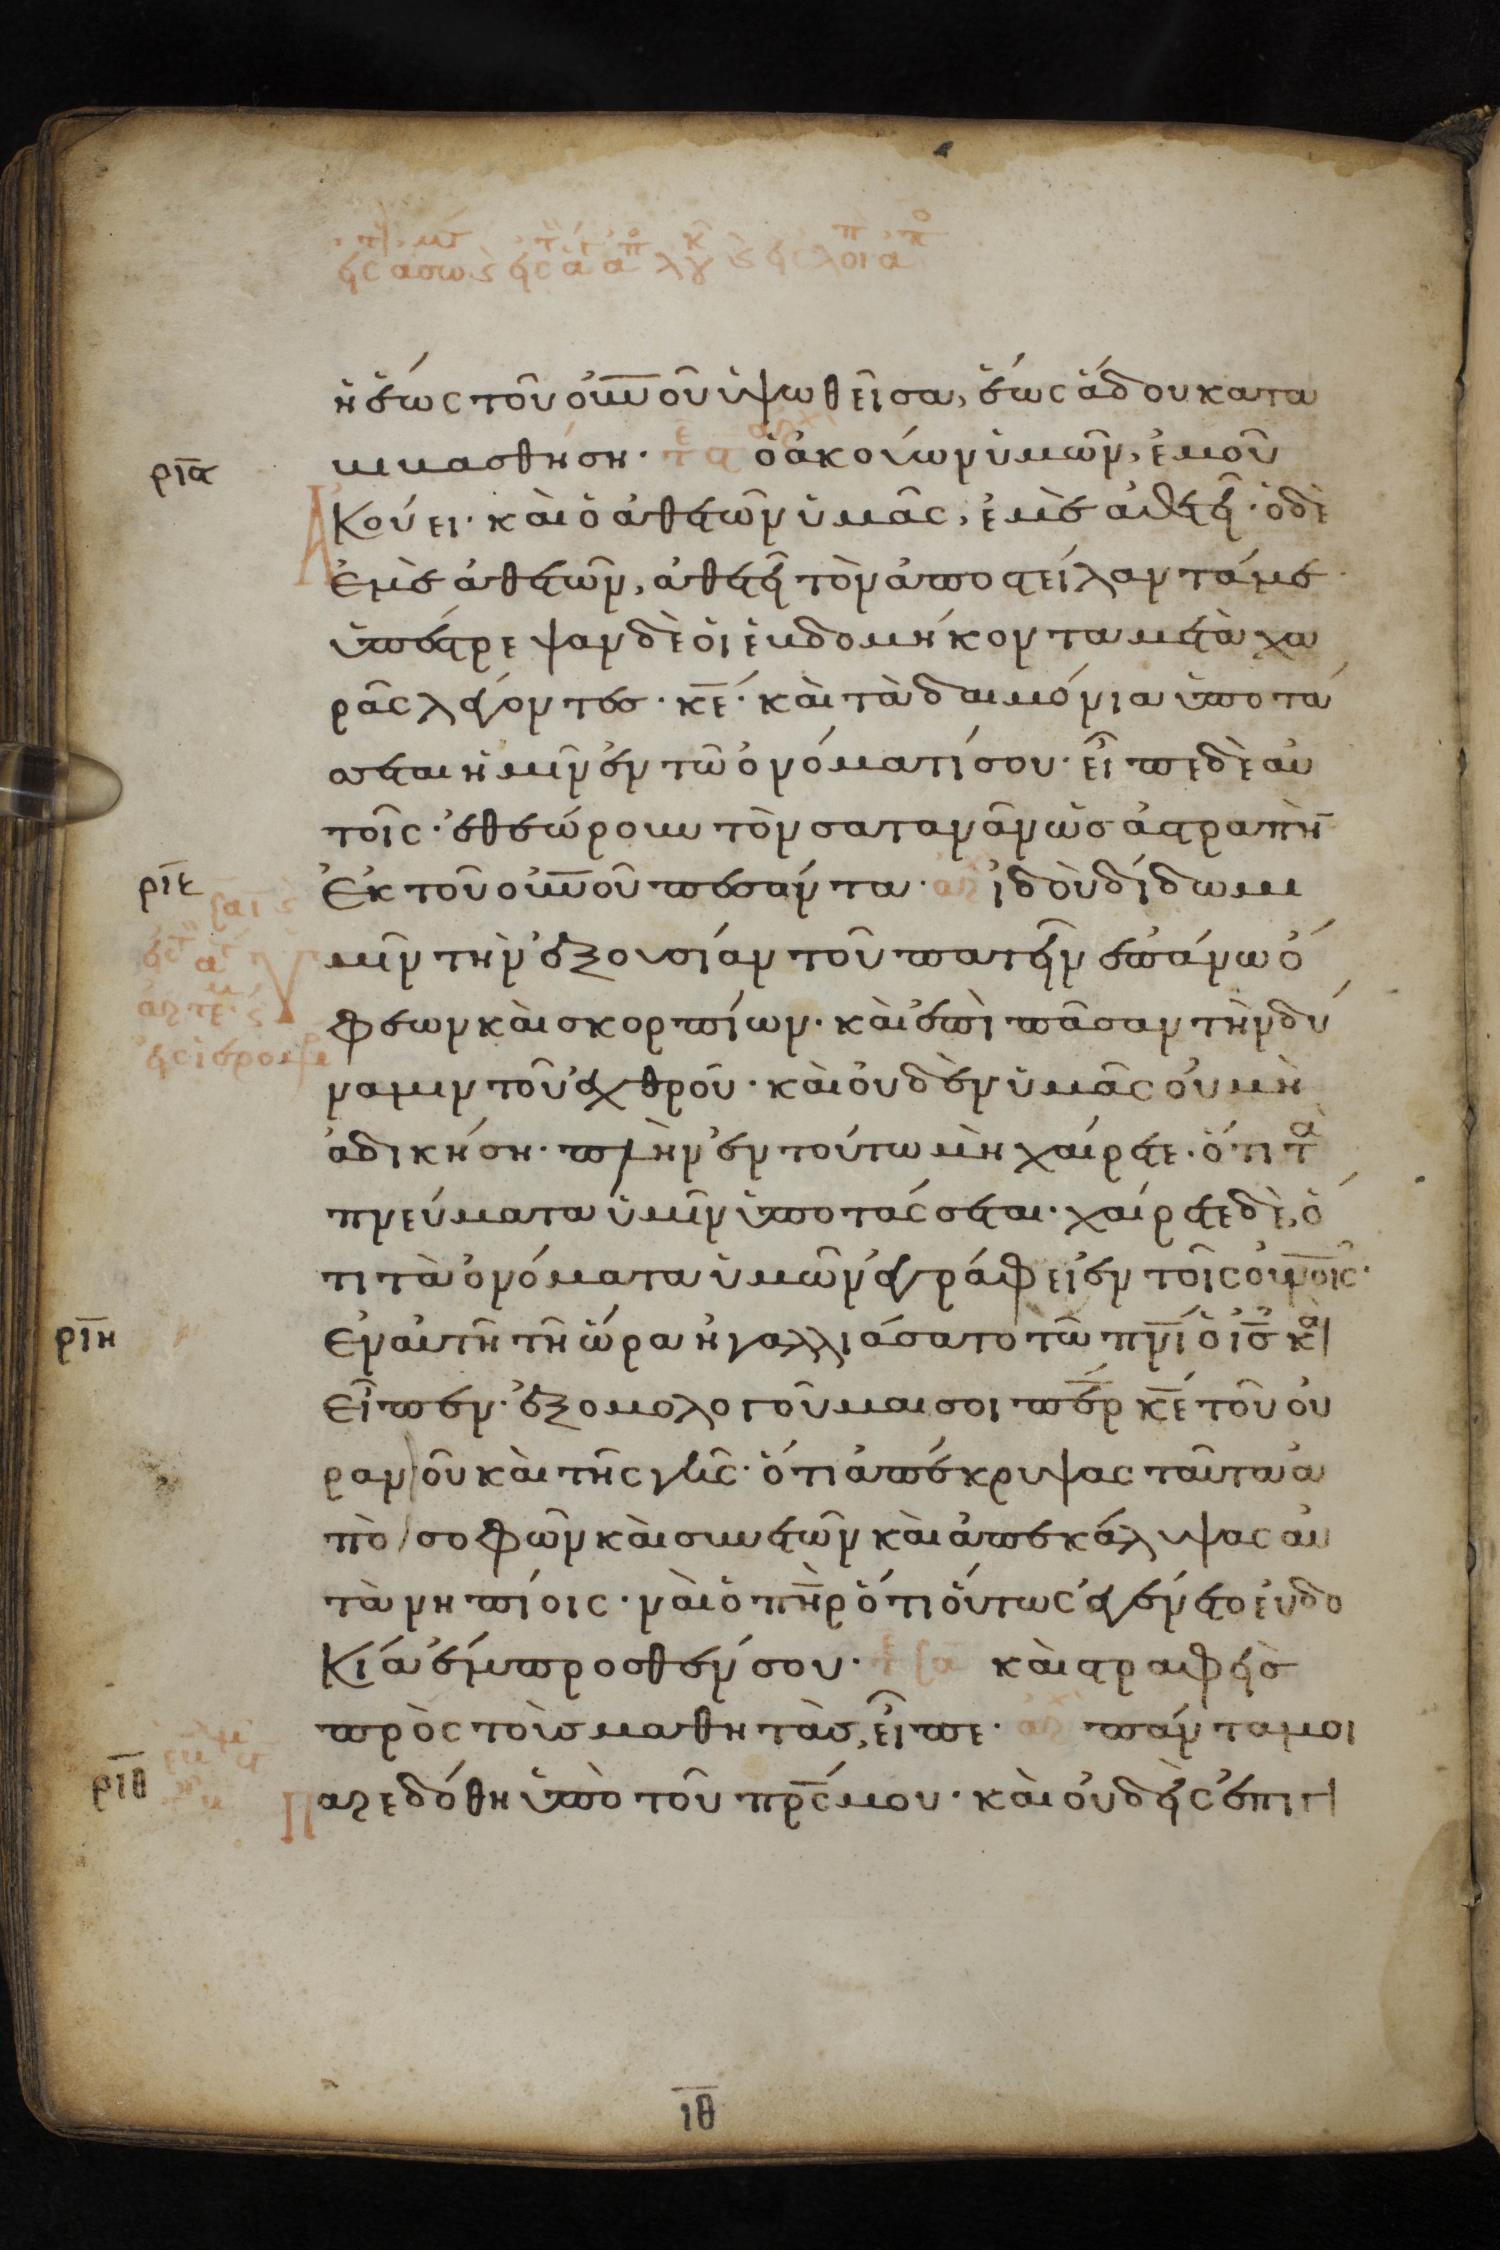 ἡ ἕως τοῦ οὐνοῦ ὑψωθεῖσα, ἕως ἅδου κατα
βιβασθήση· ὁ ἀκούων ὑμῶν, ἐμοῦ
ρια
ἀκούει· καὶ ὁ ἀθετῶν ὑμᾶς, ἐμὲ ἀθετεῖ· ὁ δὲ
ἐμὲ ἀθετῶν, ἀθετεῖ τὸν ἀποστείλαντά με·
ὑπέστρεψαν δὲ ὁι ἑβδομήκοντα μετὰ χα
ρᾶς λέγοντες· κε· καὶ τὰ δαιμόνια ὑποτά
σσεται ἡμῖν ἐν τῶ ὀνόματί σου· εἶπε δὲ αὐ
τοῖς· ἐθεώρουν τὸν σατανᾶν ὡς ἀστραπὴν
ριε
ἐκ τοῦ οὐνοῦ πεσόντα· ἰδοὺ δίδωμι
ὑμῖν τὴν ἐξουσίαν τοῦ πατεῖν ἐπάνω ὄ
φεων καὶ σκορπίων· καὶ ἐπὶ πᾶσαν τὴν δύ
ναμιν τοῦ ἐχθροῦ· καὶ οὐδὲν ὑμᾶς οὐ μὴ
ἀδικήση· πλὴν ἐν τούτω μὴ χαίρετε· ὅτι τὰ
πνεύματα ὑμῖν ὑποτάσσεται· χαίρετε δὲ, ὅ
τι τὰ ὀνόματα ὑμῶν ἐγράφει ἐν τοῖς οὐνοῖς·
ριη
ἐν αὐτῆ τῆ ὥρα ἠγαλλιάσατο τῶ πνι ὁ ισ καὶ
εἶπεν· ἐξομολογοῦμαι σοι περ κε τοῦ οὐ
ρανοῦ καὶ τῆς γῆς· ὅτι ἀπέκρυψας ταῦτα ἀ
πὸ σοφῶν καὶ συνετῶν καὶ ἀπεκάλυψας αὐ
τὰ νηπίοις· ναὶ ὁ πηρ ὅτι ὅυτως ἐγένετο εὐδο
κία ἔμπροσθέν σου· καὶ στραφεὶς
πρὸς τοὺς μαθητὰς, εἶπε· πάντα μοι
ριθ
παρεδόθη ὑπὸ τοῦ πρς μου· καὶ οὐδεὶς ἐπιγι
ιθ